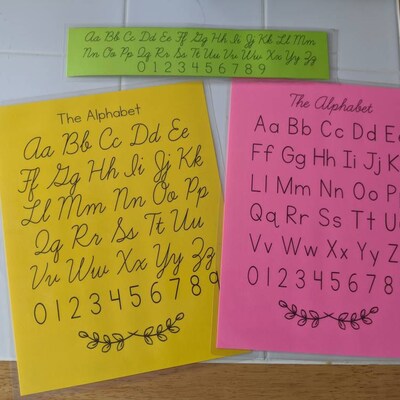 Aa Bb Cc Dd Ee Ff Gg Hh Ii Jj Kk Ll Mm
Nn Oo Pp Qq Rr Ss Tt Uu Vv Ww Xx Yy Zz
0 1 2 3 4 5 6 7 8 9
The Alphabet
Aa Bb Cc Dd Ee
Ff Gg Hh Ii Jj Kk
Ll Mm Nn Oo Pp
Qq Rr Ss Tt Uu
Vv Ww Xx Yy Zz
0 1 2 3 4 5 6 7 8 9
The Alphabet
Aa Bb Cc Dd E
Ff Gg Hh Ii Jj K
Ll Mm Nn Oo P
Qq Rr Ss Tt U
Vv Ww Xx Yy Z
0 1 2 3 4 5 6 7 8